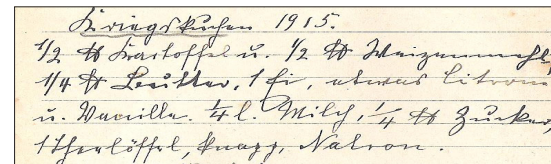 Kriegskuchen 1915.
1/2 ℔ Kartoffel u. 1/2 ℔ Weizenmehl,
1/4 ℔ Butter, 1 Ei, etwas Citrone
u. Vanille. 1/4 l. Milch, 1/4 ℔ Zucker,
1 Theelöffel, knapp, Natron.